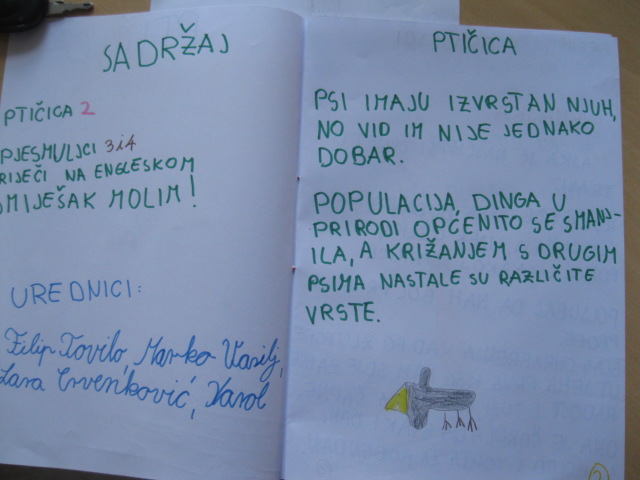 SADRŽAJ
PTIČICA 2
PJESMULJCI 3 i 4
RIJEČI NA ENGLESKOM
SMIJEŠAK MOLIM!
UREDNICI:
Filip Tovilo, Marko Vasilj,
Lara Crvenković, Karol
PTIČICA
PSI IMAJU IZVRSTAN NJUH,
NO VID IM NIJE JEDNAKO
DOBAR.
POPULACIJA DINGA U
PRIRODI OPĆENITO SE SMANJ-
ILA, A KRIŽANJEM S DRUGIM
PSIMA NASTALE SU RAZLIČITE
VRSTE.
2